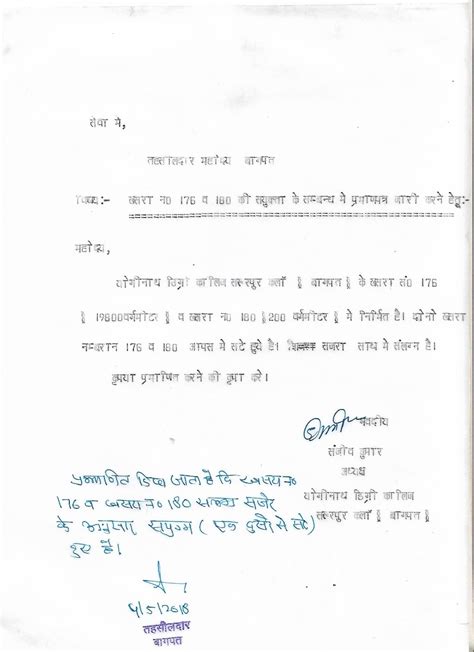 सेवा मे,
तहसीलदार महोदय बागपत
विषय:- खसरा न0 176 व 180 की सयुक्ता के सम्बन्ध मे प्रमाणपत्र जारी करने हेतू:-
महोदय,
योगीनाथ डिग्री कालिज सरूरपुर कलॉ § बागपत § के खसरा सं0 176
§ 19800वर्गमीटर § व खसरा न0 180 §200 वर्गमीटर § मे निर्मित है। दोनो खसरा
नम्बरान 176 व 180 आपस मे सटे हुये है। सजरा साथ मे संलग्न है।
कृपया प्रमाणित करने की कृपा करे।
भवदीय
संजीव कुमार
अध्यक्ष
योगीनाथ डिग्री कालिज
सरूरपुर कलॉ § बागपत §
प्रमाणित किया जाता है कि खसरा न०
176 व खसरा न० 180 सजरे
के अनुसार संयुक्त ( एक दूसरे से सटे)
हुए है।
4/5/2018
तहसीलदार
बागपत